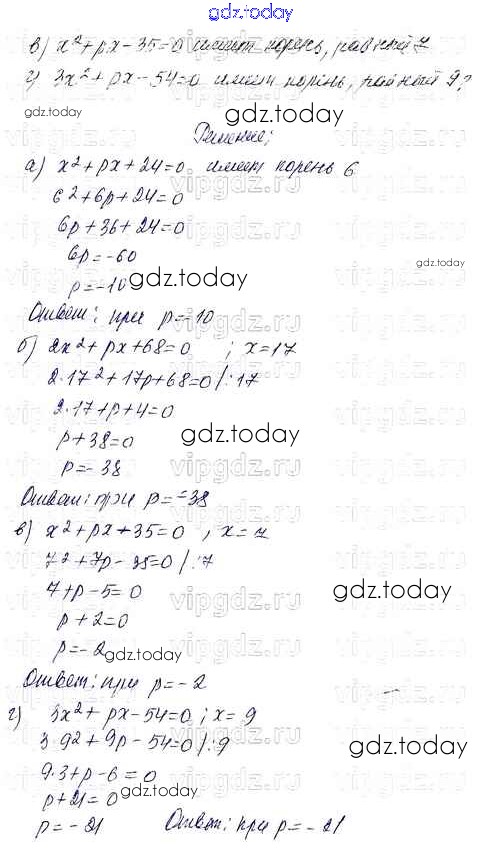 gdz.today
в) x²+px-35=0 имеет корень, равный 7
г) 3x²+px-54=0 имеет корень, равный 9?
gdz.today
gdz.today
Решение:
vipgdz.ru
а) x²+px+24=0 имеет корень 6
6²+6p+24=0
vipgdz.ru
6p+36+24=0
vipgdz.ru
6p=-60
gdz.today
gdz.today
p=-10
vipgdz.ru
Ответ: при p=-10
б) 2x²+px+68=0 ; x=17
2·17²+17p+68=0 /:17
vipgdz.ru
2·17+p+4=0
p+38=0
gdz.today
p=-38
vipgdz.ru
Ответ: при p=-38
в) x²+px+35=0 , x=7
7²+7p-35=0 /:7
7+p-5=0
gdz.today
vipgdz.ru
p+2=0
p=-2
gdz.today
Ответ: при p=-2
г) 3x²+px-54=0 ; x=9
vipgdz.ru
3·9²+9p-54=0 /:9
gdz.today
9·3+p-6=0
p+21=0
gdz.today
p=-21 Ответ: при p=-21